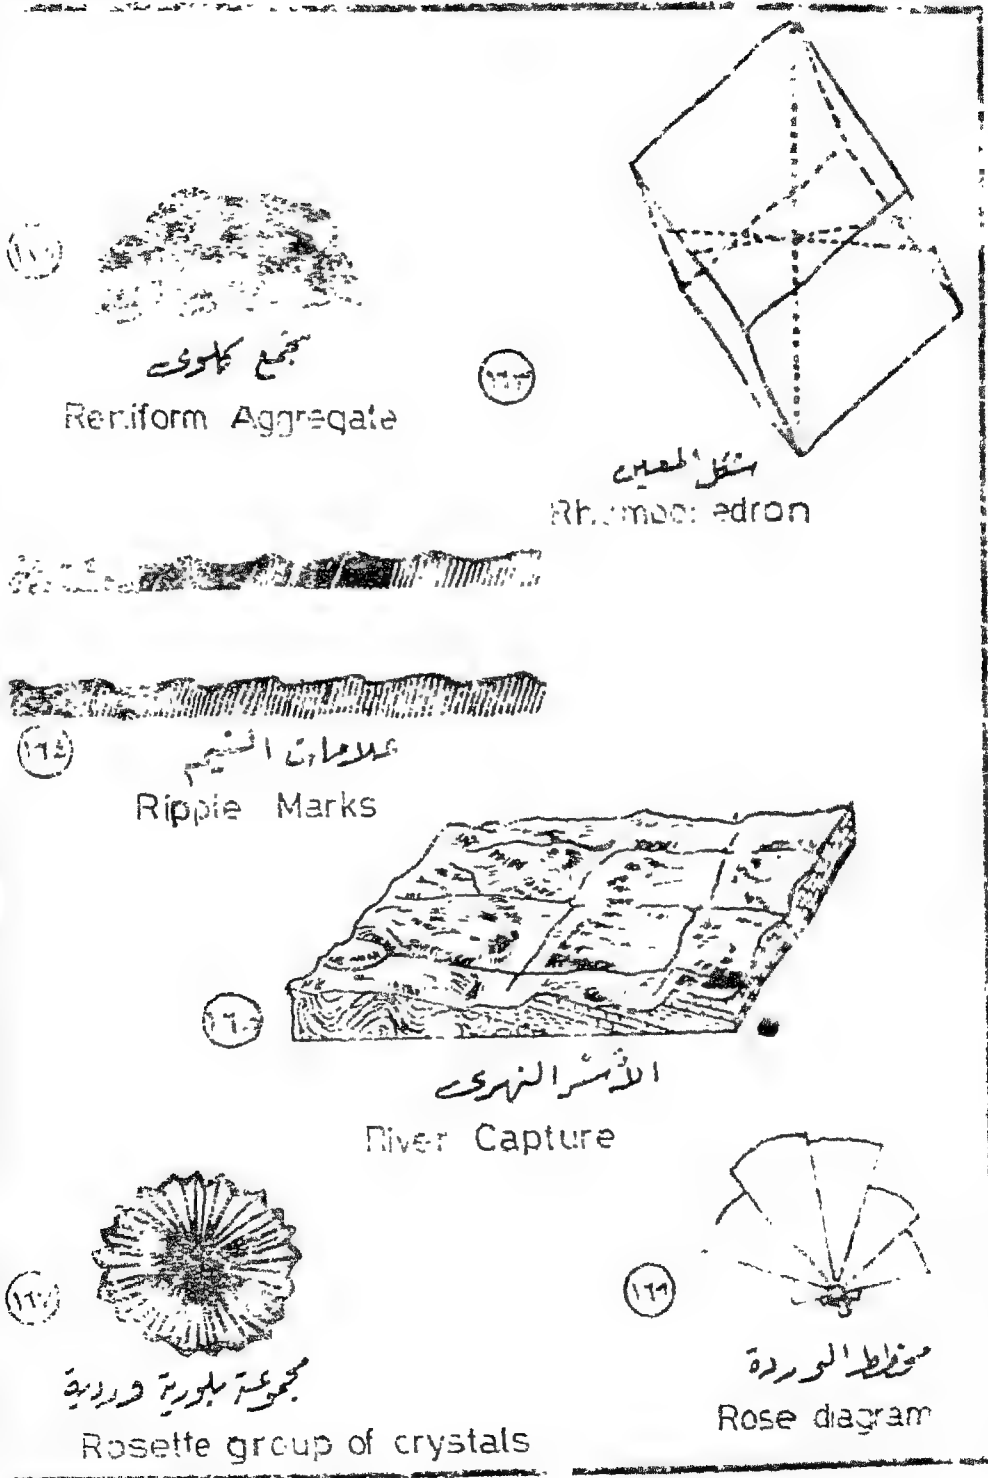 مجمع كلوى
Reniform Aggregate
١٦٣
شكل المعين
Rhombohedron
١٦٤
علامات النيم
Ripple Marks
الأسر النهرى
River Capture
مجموعة بلورية وردية
Rosette group of crystals
مخطط الوردة
Rose diagram